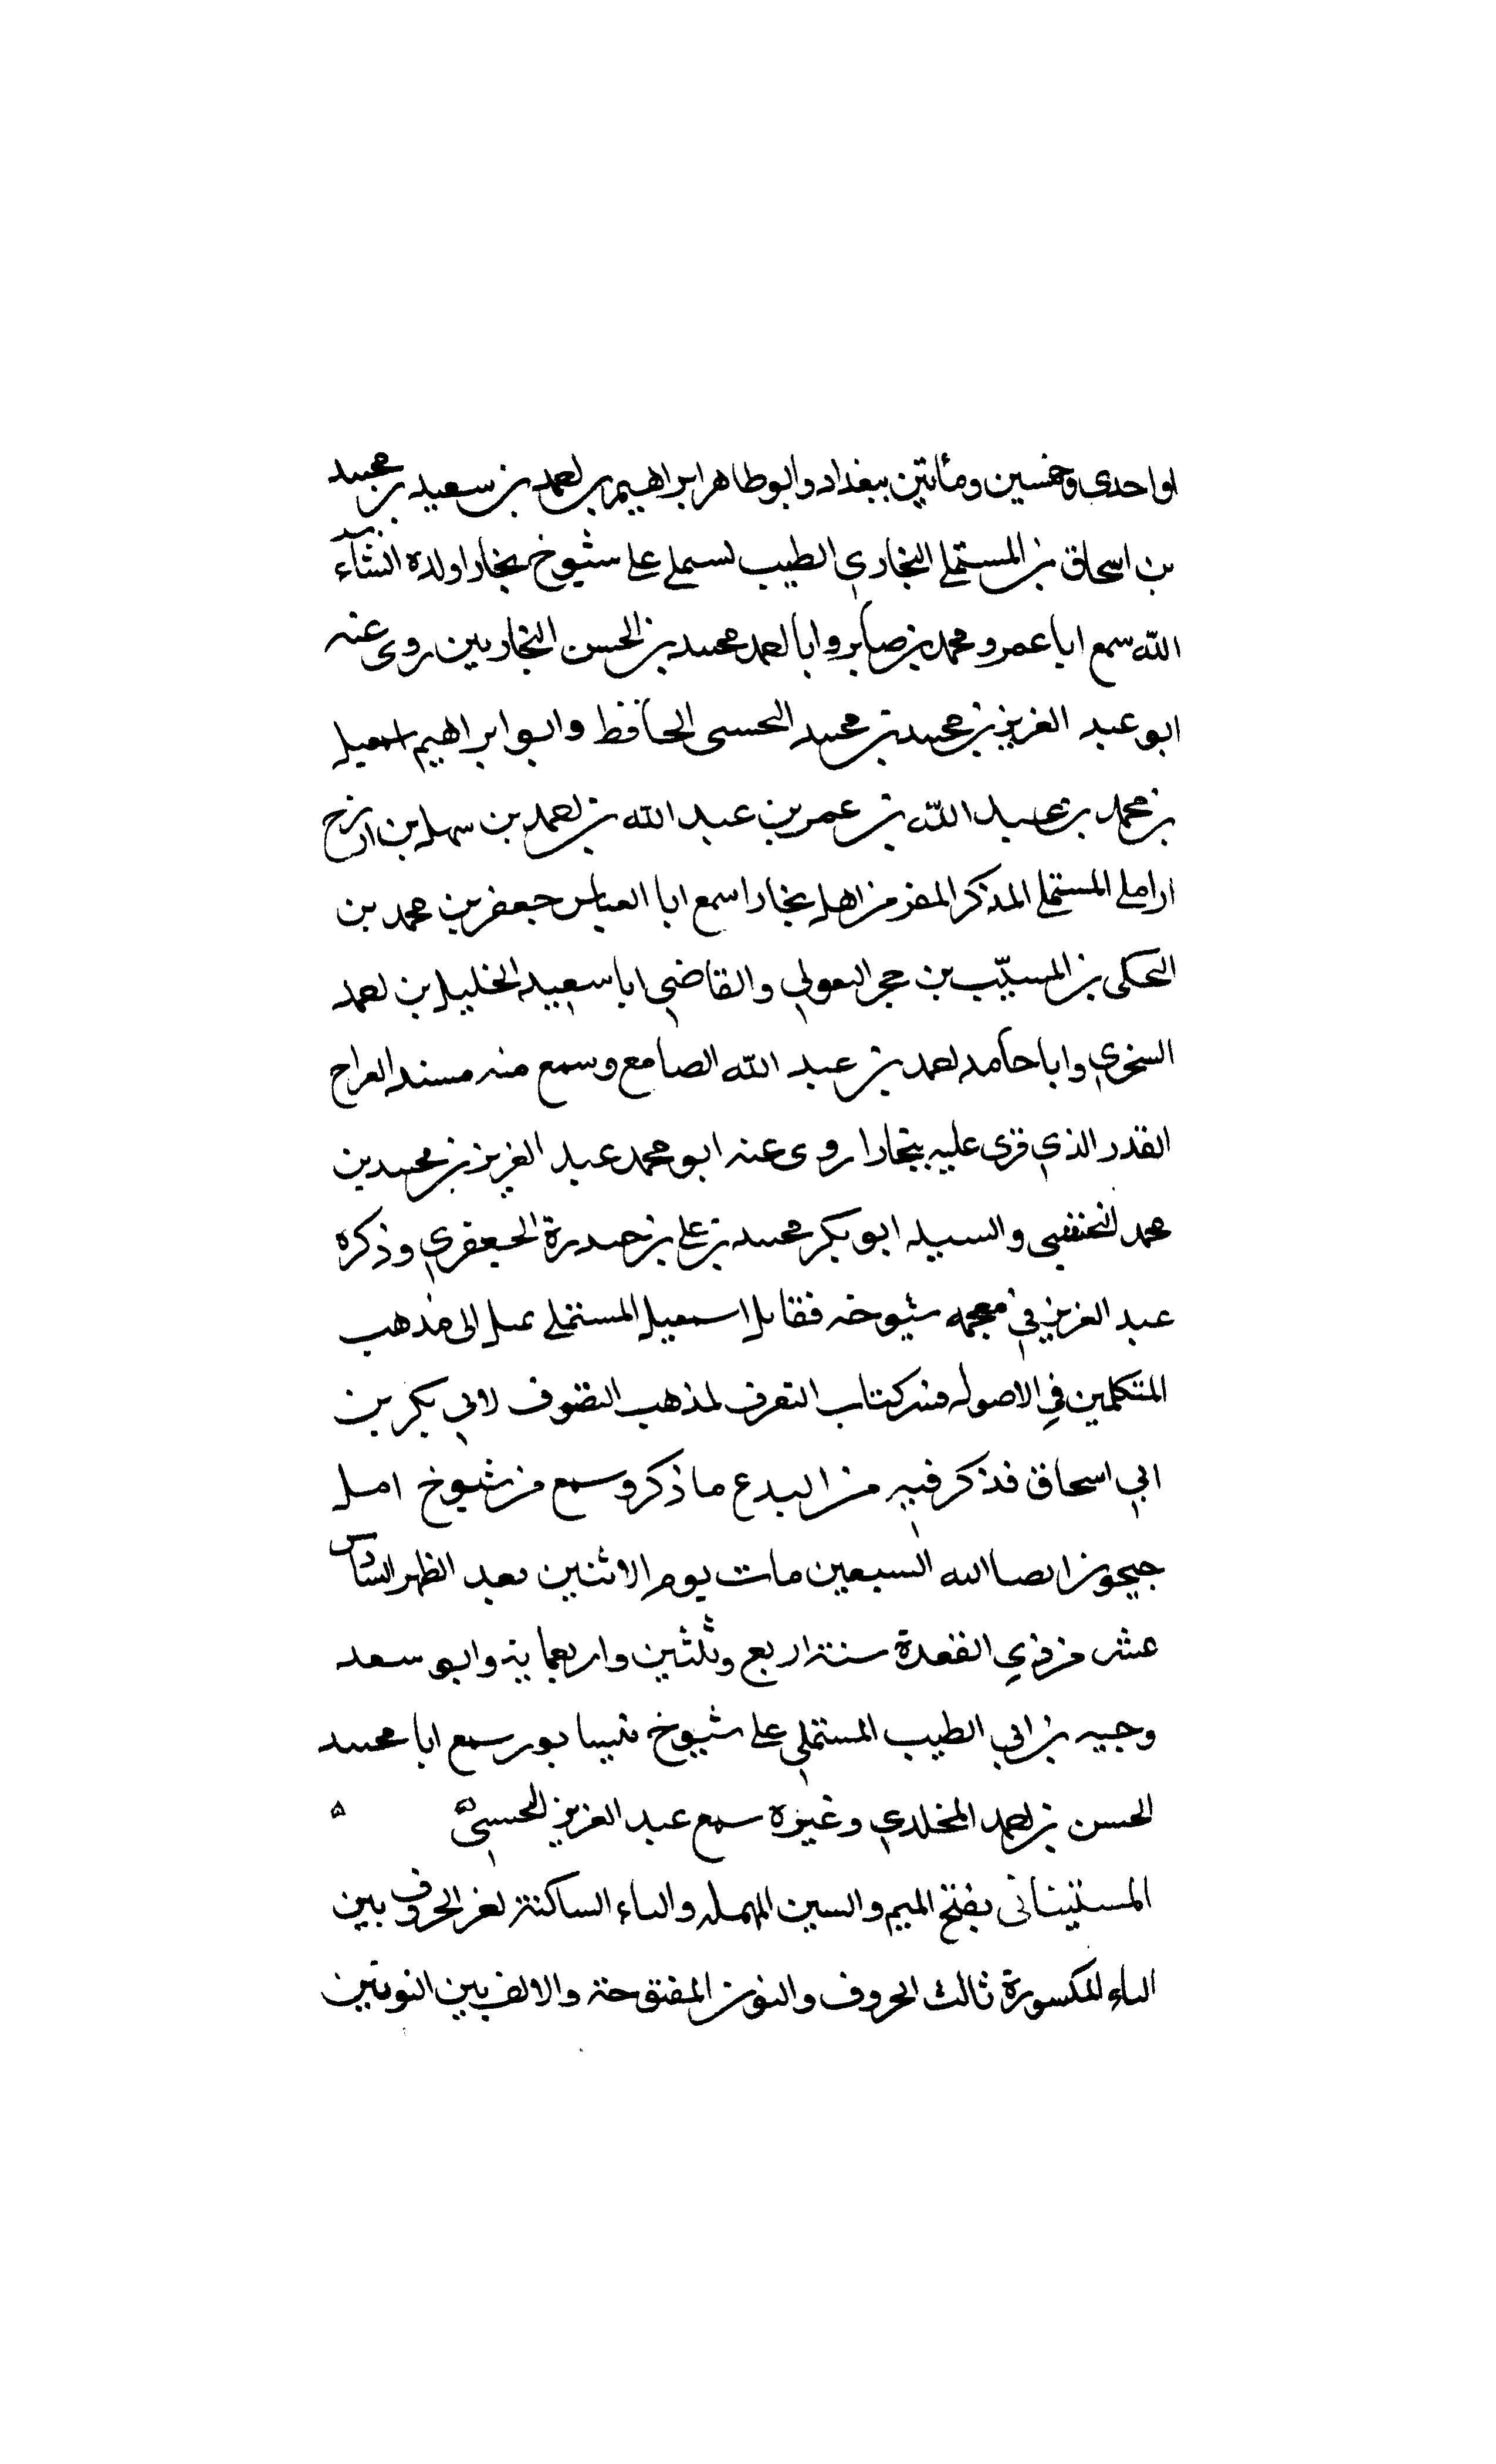 او احدى وخمسين ومأتين ببغداد وابو طاهر ابراهيم بن احمد بن سعيد بن محمد
بن اسحاق بن المستملي البخاري الطيب لسملي على شيوخ بخارا ولده انشآء
الله سمع ابا عمرو محمد بن صابر وابا احمد محمد بن الحسن البخاريين روى عنه
ابو عبد العزيز بن محمد بن محمد النحسى الحافظ وابو ابراهيم اسمعيل
بن محمد بن عبد الله بن عمر بن عبد الله بن احمد بن سهل بن
المستملي المذكر من اهل بخارا سمع ابا العباس جعفر بن محمد بن
المكى بن المسيّب بن حجر والقاضي ابا سعيد الخليل بن احمد
السنجري وابا حامد احمد بن عبد الله الصامع وسمع منه مسند
القدر الذي قرى عليه ببخارا روى عنه ابو محمد عبد العزيز بن محمد بن
محمد النخشبى والسيد ابو بكر محمد بن على بن حيدرة الجعفري وذكره
عبد العزيز في معجمه شيوخه فقال اسمعيل المستملي يميل الى مذهب
المتكلمين في الاصول كتاب التعرف لمذهب التصوف لابي بكر بن
ابي اسحاق فذكر فيه من البدع ما ذكر وسمع من شيوخ امل
جيجون السبعين مات يوم الاثنين بعد الظهر السادس
عشر من ذي القعدة سنة اربع وثلثين واربعماية وابو سعد
وجيه بن ابي الطيب المستملي على شيوخ نيسابور سمع ابا محمد
الحسن بن احمد المخلدي وغيره سمع عبد العزيز النحسى
المستينانى بفتح الميم والسين المهمله والياء الساكنة اخر الحروف بين
التاء المكسورة ثالث الحروف والنون المفتوحة والالف بين النونين